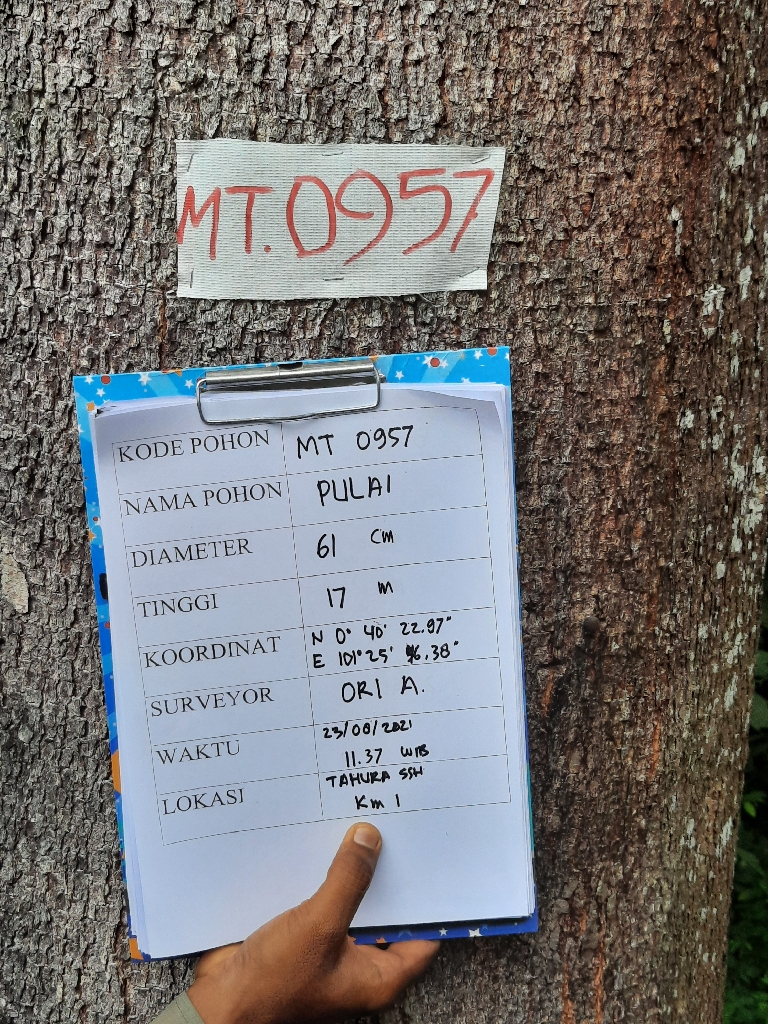 MT.0957
KODE POHON MT 0957
NAMA POHON PULAI
DIAMETER 61 Cm
TINGGI 17 m
KOORDINAT N 0° 40' 22.97"
E 101° 25'
SURVEYOR ORI A.
WAKTU 23/08/2021
11.37 WIB
LOKASI TAHURA SSH
Km 1